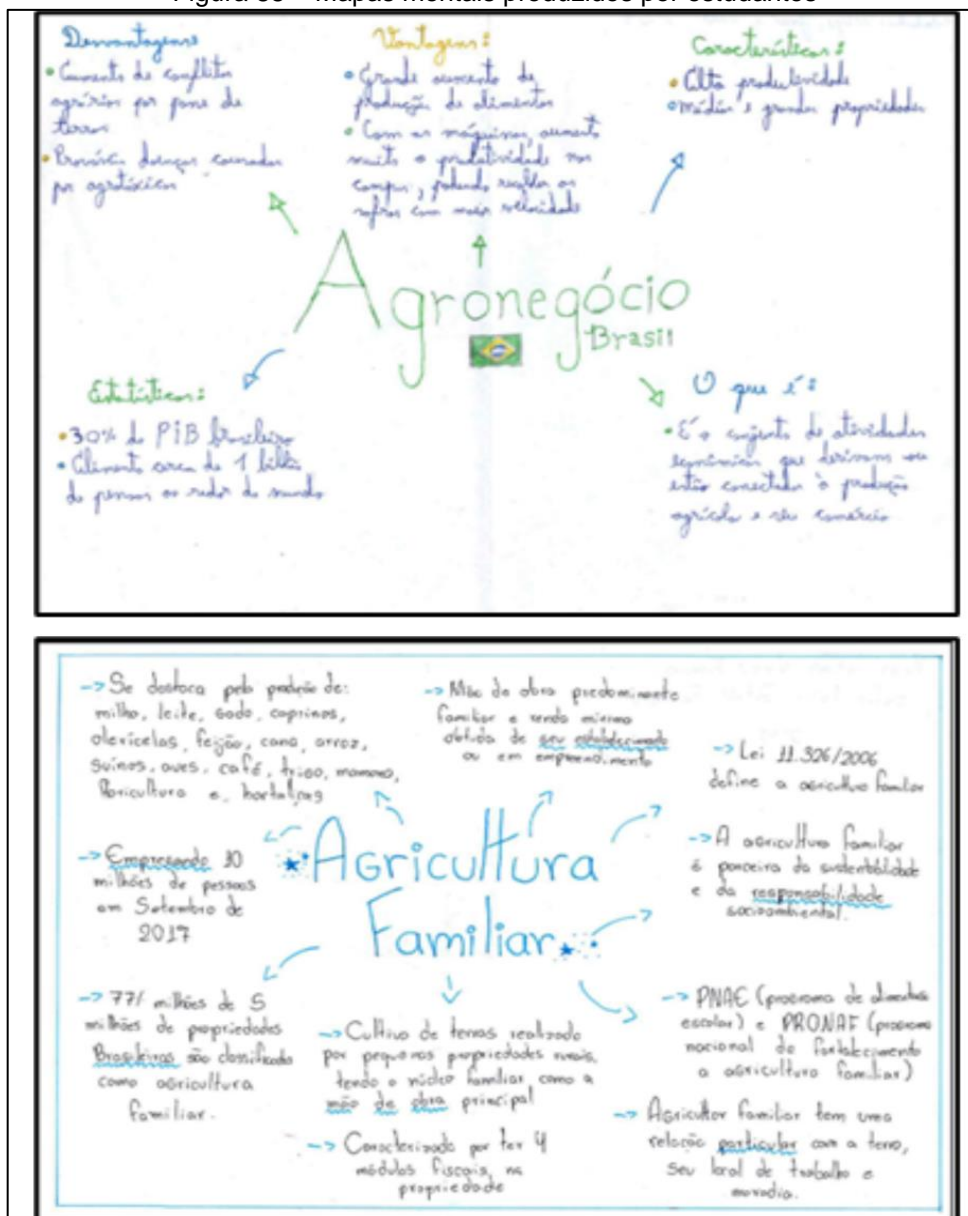 Desvantagens
• Aumento de conflitos
agrários por posse de
terras
• doenças causadas
por agrotóxicos
Vantagens:
• Grande aumento da
produção de alimentos
• Com as máquinas, aumenta
muito a produtividade nos
campos, podendo recolher as
safras com maior velocidade
Características:
• Alta produtividade
• médias e grandes propriedades
Agronegócio
Brasil
Estatísticas:
• 30% do PiB brasileiro
• Alimenta cerca de 1 bilhão
de pessoas ao redor do mundo
O que é:
• É o conjunto de atividades
econômicas que derivam ou
estão conectadas à produção
agrícola e seu comércio
-> Se destaca pela produção de:
milho, leite, gado, caprinos,
olerícolas, feijão, cana, arroz,
suínos, aves, café, trigo, mamona,
e, hortaliças
-> Mão de obra predominante
familiar e renda mínima
obtida de seu estabelecimento
ou em empreendimento
-> Lei 11.326/2006
define a agricultura familiar
-> A agricultura familiar
é parceira da sustentabilidade
e da responsabilidade
socioambiental.
-> Empregando 10
milhões de pessoas
em Setembro de
2017
Agricultura
Familiar
-> milhões de 5
milhões de propriedades
Brasileiras são classificada
como agricultura
familiar.
-> Cultivo de terras realizado
por pequenas propriedades rurais,
tendo o núcleo familiar como a
mão de obra principal
-> Caracterizada por ter 4
módulos fiscais, na
propriedade
-> PNAE (programa de
escolar) e PRONAF (programa
nacional de fortalecimento
a agricultura familiar)
-> Agricultor familiar tem uma
relação particular com a terra,
seu local de trabalho e
moradia.